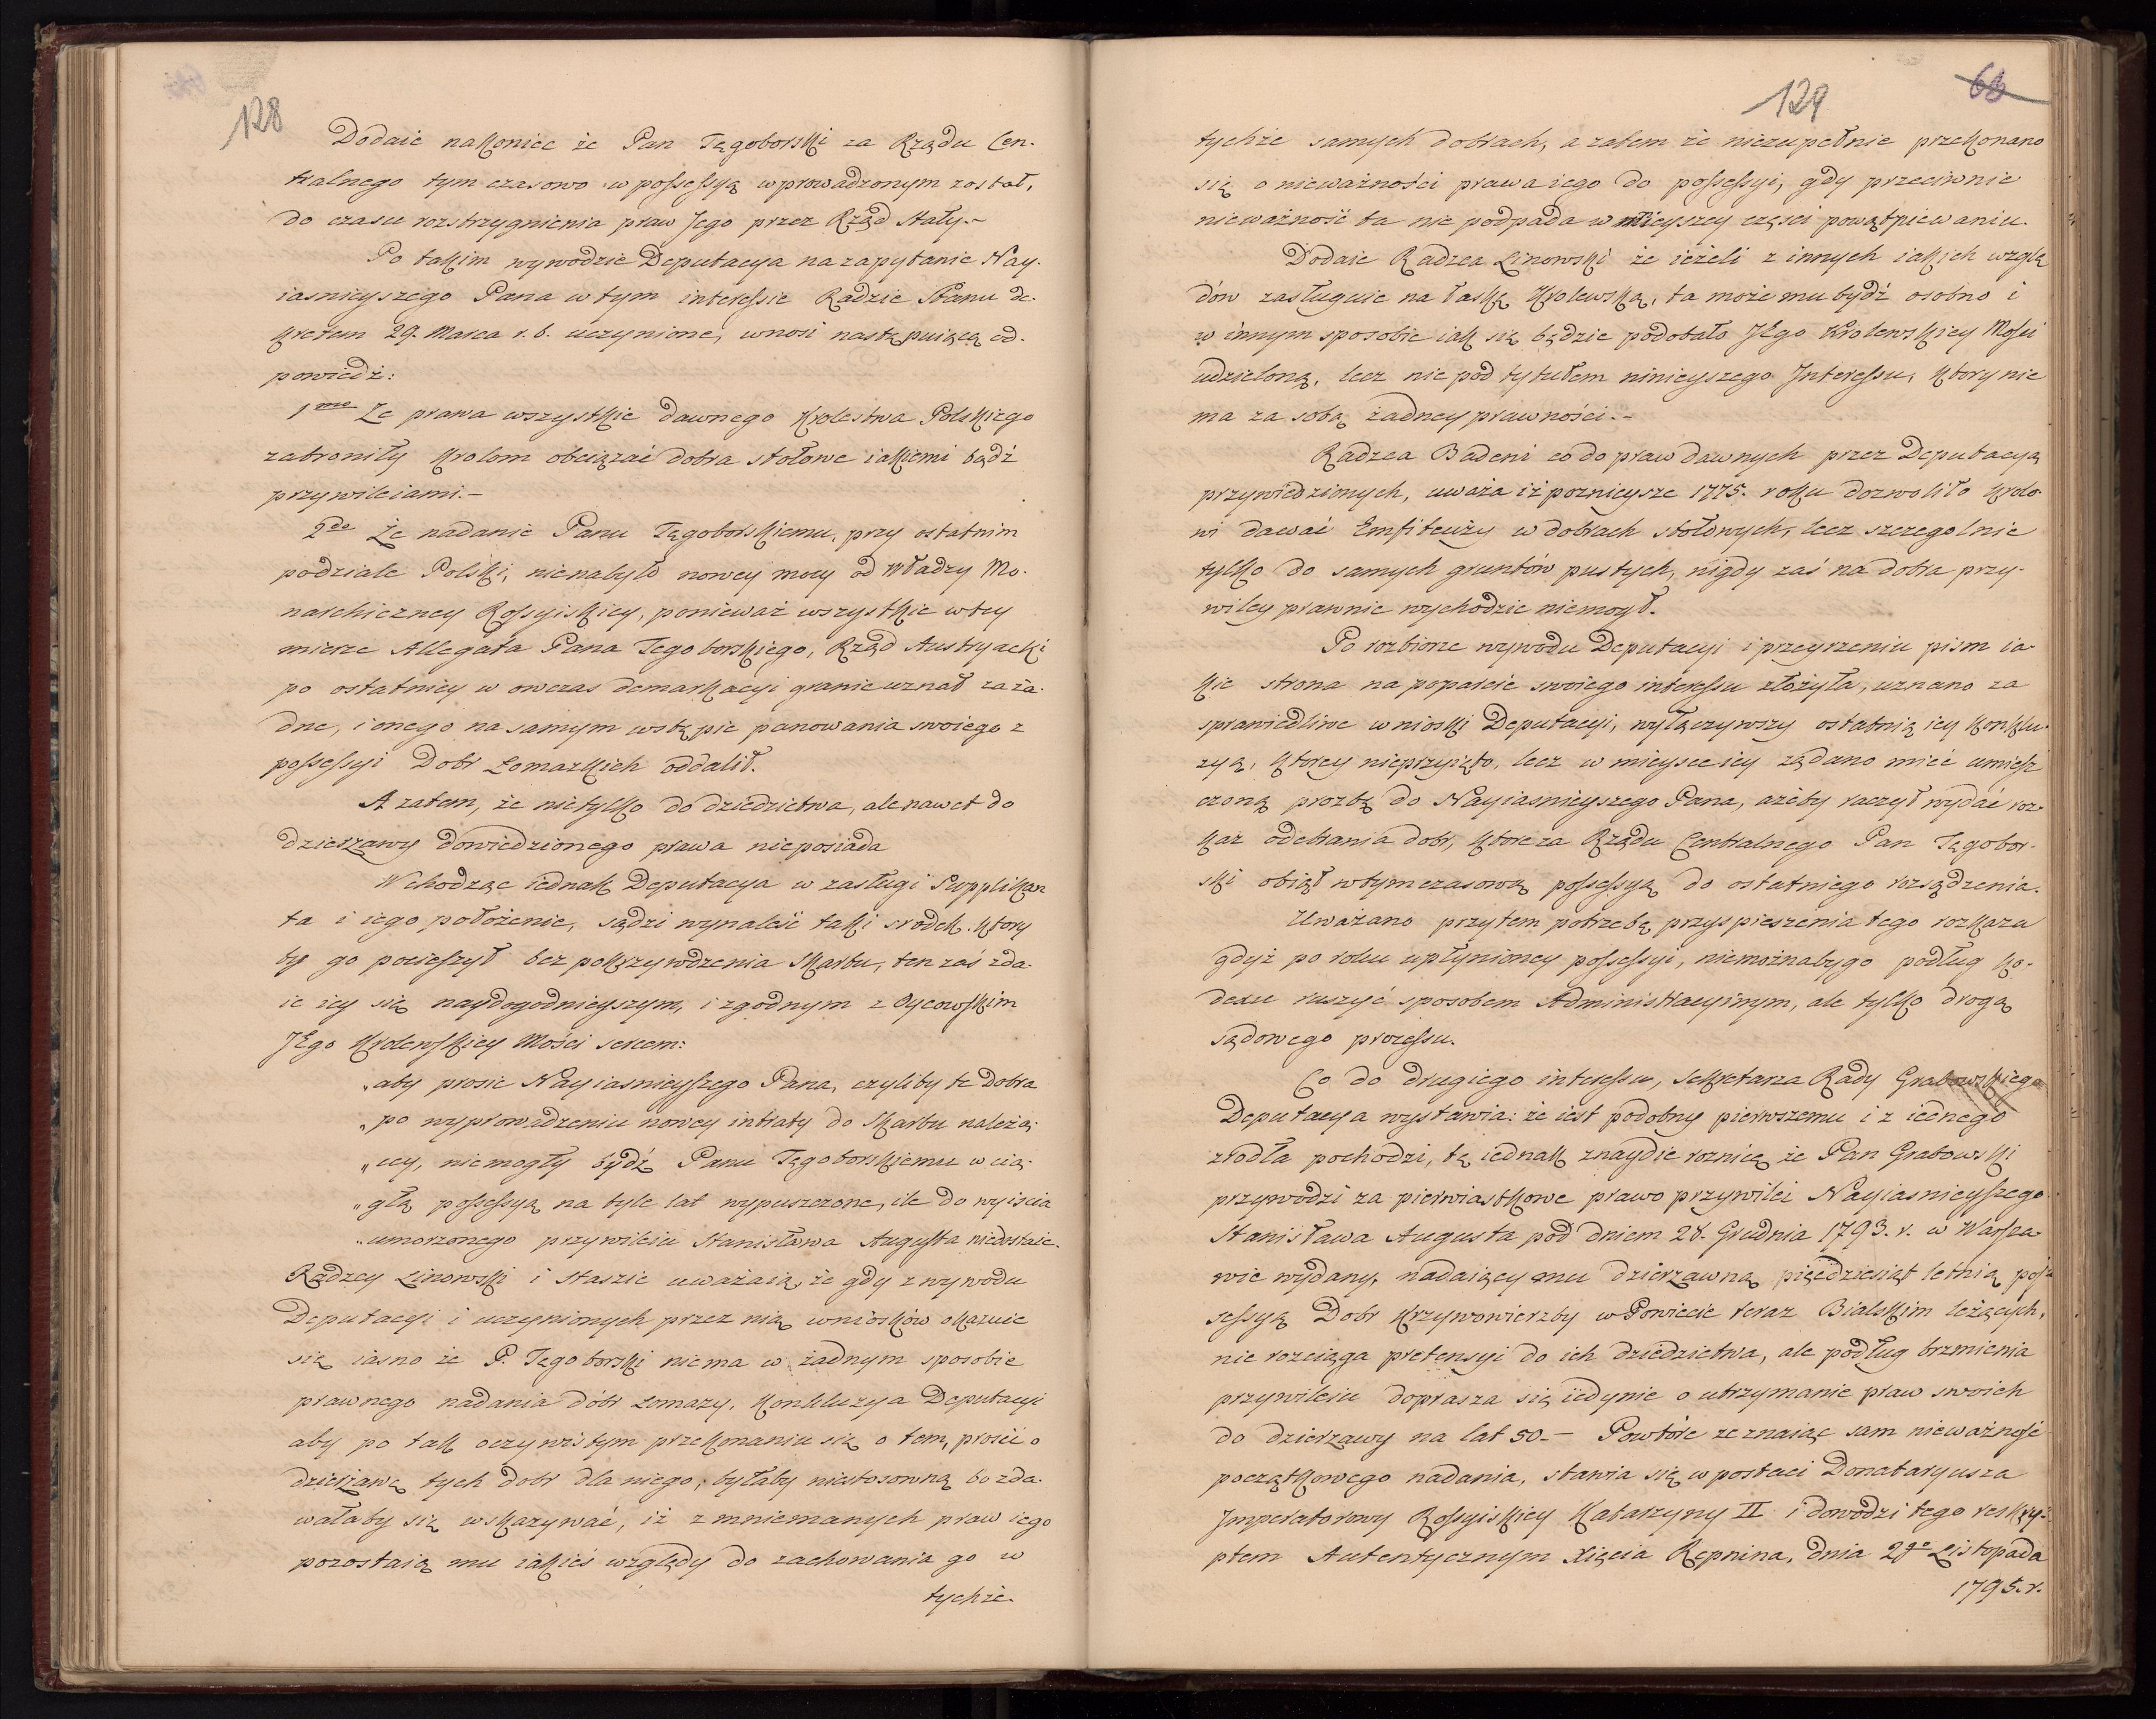 128
Dodaie nakoniec że Pan Tęgoborski za Rządu Cen-
tralnego tymczasowo w possessyą wprowadzonym został,
do czasu rozstrzygnienia praw Jego przez Rząd Stały.-
Po takim wywodzie Deputacya na zapytanie Nay-
iasnieyszego Pana w tym interessie Radzie Stanu de-
kretem 29. Marca r. b. uczynione, wnosi następuiącą od-
powiedź:
1mo Ze prawa wszystkie dawnego Krolestwa Polskiego
zabroniły Krolom obciązać dobra stołowe iakiemi bądź
przywileiami.-
2do Że nadanie Panu Tęgoborskiemu, przy ostatnim
podziale Polski, nienabyło nowey mocy od Władzy Mo-
narchiczney Rossyiskiey, ponieważ wszystkie w tey
mierze Allegata Pana Tęgoborskiego, Rząd Austryacki
po ostatniey w owczas demarkacyi granic uznał za ża-
dne, i onego na samym wstępie panowania swoiego z
possessyi Dobr Łomazkich oddalił.
A zatem, że nietylko do dziedzictwa, ale nawet do
dzierzawy dowiedzionego prawa nieposiada
Wchodząc iednak Deputacya w zasługi Supplikan
ta i iego położenie, sądzi wynaleść taki srodek. ktory
by go pocieszył bez pokrzywdzenia Skarbu, ten zaś zda-
ie iey się naydogodnieyszym, i zgodnym z Oycowskim
JEgo Krolewskiey Mości sercem:
„aby prosic Nayiasnieyszego Pana, czyliby te Dobra
„po wyprowadzeniu nowey intraty do Skarbu należą-
„cey, niemogły bydź Panu Tęgoborskiemu w cią-
„głą possessyą na tyle lat wypuszczone, ile do wyiscia
„umorzonego przywileiu Stanisława Augusta niedostaie.
Radzcy Linowski i Staszic uważaią, że gdy z wywodu
Deputacyi i uczynionych przez nią wniosków okazuie
się iasno że P. Tęgoborski niema w żadnym sposobie
prawnego nadania dóbr Łomazy, Konkluzya Deputacyi
aby po tak oczywistym przekonaniu się o tem, prosić o
dzierżawę tych dobr dla niego, byłaby niestosowną bo zda-
wałaby się wskazywać, iż z mniemanych praw iego
pozostaią mu iakieś względy do zachowania go w
tychże.
129
68
tychże samych dobrach, a zatem że niezupełnie przekonano
się o nieważności prawa iego do possessyi, gdy przeciwnie
nieważność ta nie podpada w nieyszey części powątpiewaniu.
Dodaie Radzca Linowski że ieżeli z innych iakich wzglę
dów zasługuie na łaskę Krolewską, ta może mu bydź osobno i
w innym sposobie iak się będzie podobało JEgo Krolewskiey Mości
udzieloną, lecz nie pod tytułem ninieyszego Interessu, ktory nie
ma za sobą żadney prawności.-
Radzca Badeni co do praw dawnych przez Deputacyą
przywiedzionych, uważa iż poznieysze 1775. roku dozwoliło Krolo
wi dawać Emfiteuzy w dobrach stołowych, lecz szczegolnie
tylko do samych gruntów pustych, nigdy zaś na dobra przy-
wiley prawnie wychodzic niemogł.
Po rozbiorze wywodu Deputacyi i przeyrzeniu pism ia-
kie strona na poparcie swoiego interessu złożyła, uznano za
sprawiedliwe wnioski Deputacyi, wyłączywszy ostatnią iey konklu-
zyą, ktorey nieprzyięto, lecz w mieysce iey żądano mieć umiesz
czoną prozbę do Nayiasnieyszego Pana, ażeby raczył wydać roz-
kaz odebrania dobr, ktore za Rządu Centralnego Pan Tęgobor-
ski obiął w tymczasową possessyą do ostatniego rozsądzenia.
Uważano przytem potrzebę przyspieszenia tego rozkazu
gdyż po roku upłynioney possessyi, niemożnaby go podług Ko-
dexu ruszyć sposobem Administracyinym, ale tylko drogą
sądowego processu.
Co do drugiego interessu, Sekretarza Rady Grabowskiego
Deputacya wystawia: że iest podobny pierwszemu i z iednego
źrodła pochodzi, tę iednak znaydie roznicę że Pan Grabowski
przywodzi za pierwiastkowe prawo przywilei Nayiasnieyszego
Stanisława Augusta pod dniem 28. Grudnia 1793. r. w Warsza
wie wydany, nadaiący mu dzierzawną pięćdziesiąt letnią pos-
sessyą Dobr Krzywowierzby w Powiecie teraz Bialskim leżących,
nie rozciąga pretensyi do ich dziedzictwa, ale podług brzmienia
przywileiu doprasza się iedynie o utrzymanie praw swoich
do dzierzawy na lat 50.- Powtóre zeznaiąc sam nieważność
początkowego nadania, stawia się w postaci Donataryusza
Imperatorowy Rossyiskiey Katarzyny II i dowodzi tego reskry-
ptem Autentycznym Xięcia Repnina, dnia 2go Listopada
1795. r.